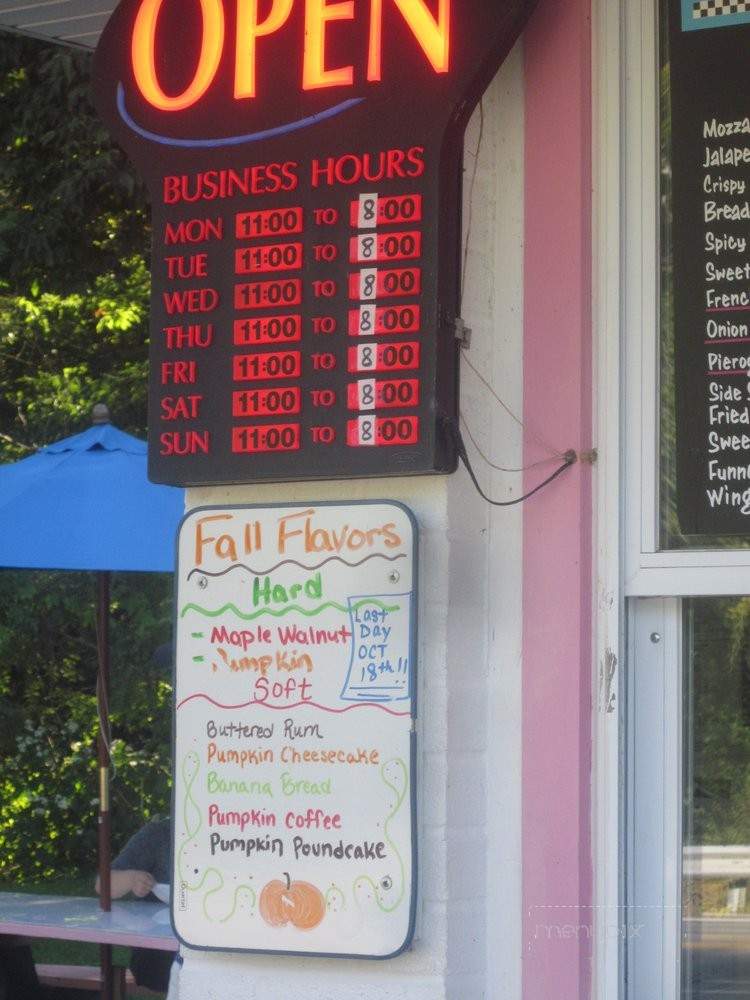 OPEN
BUSINESS HOURS
MON 11:00 TO 8:00
TUE 11:00 TO 8:00
WED 11:00 TO 8:00
THU 11:00 TO 8:00
FRI 11:00 TO 8:00
SAT 11:00 TO 8:00
SUN 11:00 TO 8:00
Fall Flavors
Hard
- Maple Walnut
- Pumpkin
Last
Day
OCT
18th!!
Soft
Buttered Rum
Pumpkin Cheesecake
Banana Bread
Pumpkin Coffee
Pumpkin Poundcake
N
Mozza
Jalape
Crispy
Bread
Spicy
Sweet
Frenc
Onion
Pierog
Side S
Fried
Swee
Funn
Wing
menupix